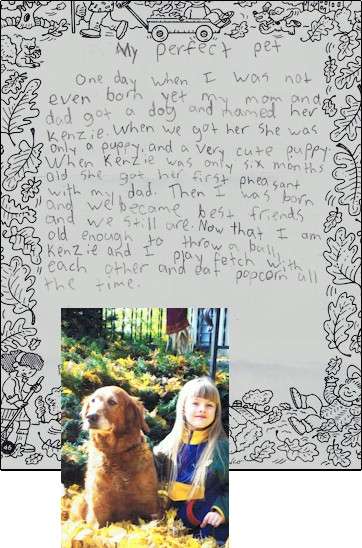 My perfect pet
One day when I was not
even born yet my mom and
dad got a dog and named her
Kenzie. When we got her she was
only a puppy, and a very cute puppy.
When Kenzie was only six months
old she got her first pheasant
with my dad. Then I was born
and we became best friends
and we still are. Now that I am
old enough to throw a ball,
Kenzie and I play fetch with
each other and eat popcorn all
the time.
46